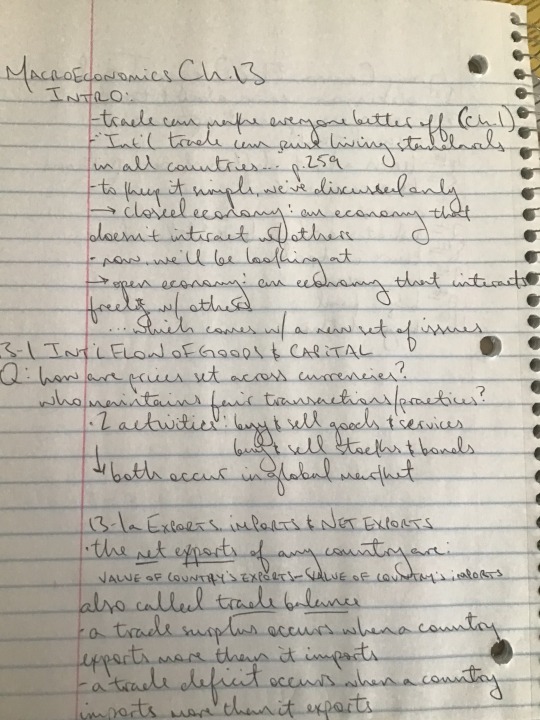 MACROECONOMICS Ch. 13
INTRO:
- trade can make everyone better off (Ch. 1)
- "Int'l trade can raise living standards
in all countries... p.259
- to keep it simple, we've discussed only
→ closed economy: an economy that
doesn't interact w/ others
- now, we'll be looking at
→ open economy: an economy that interacts
freely w/ others
...which comes w/ a new set of issues
3-1 INT'L FLOW OF GOODS & CAPITAL
Q: how are prices set across currencies?
who maintains fair transactions/practices?
· 2 activities: buy & sell goods & services
buy & sell stocks & bonds
↓ both occur in global market
13-1a EXPORTS, IMPORTS & NET EXPORTS
· the net exports of any country are:
VALUE OF COUNTRY'S EXPORTS - VALUE OF COUNTRY'S IMPORTS
also called trade balance
- a trade surplus occurs when a country
exports more than it imports
- a trade deficit occurs when a country
imports more than it exports